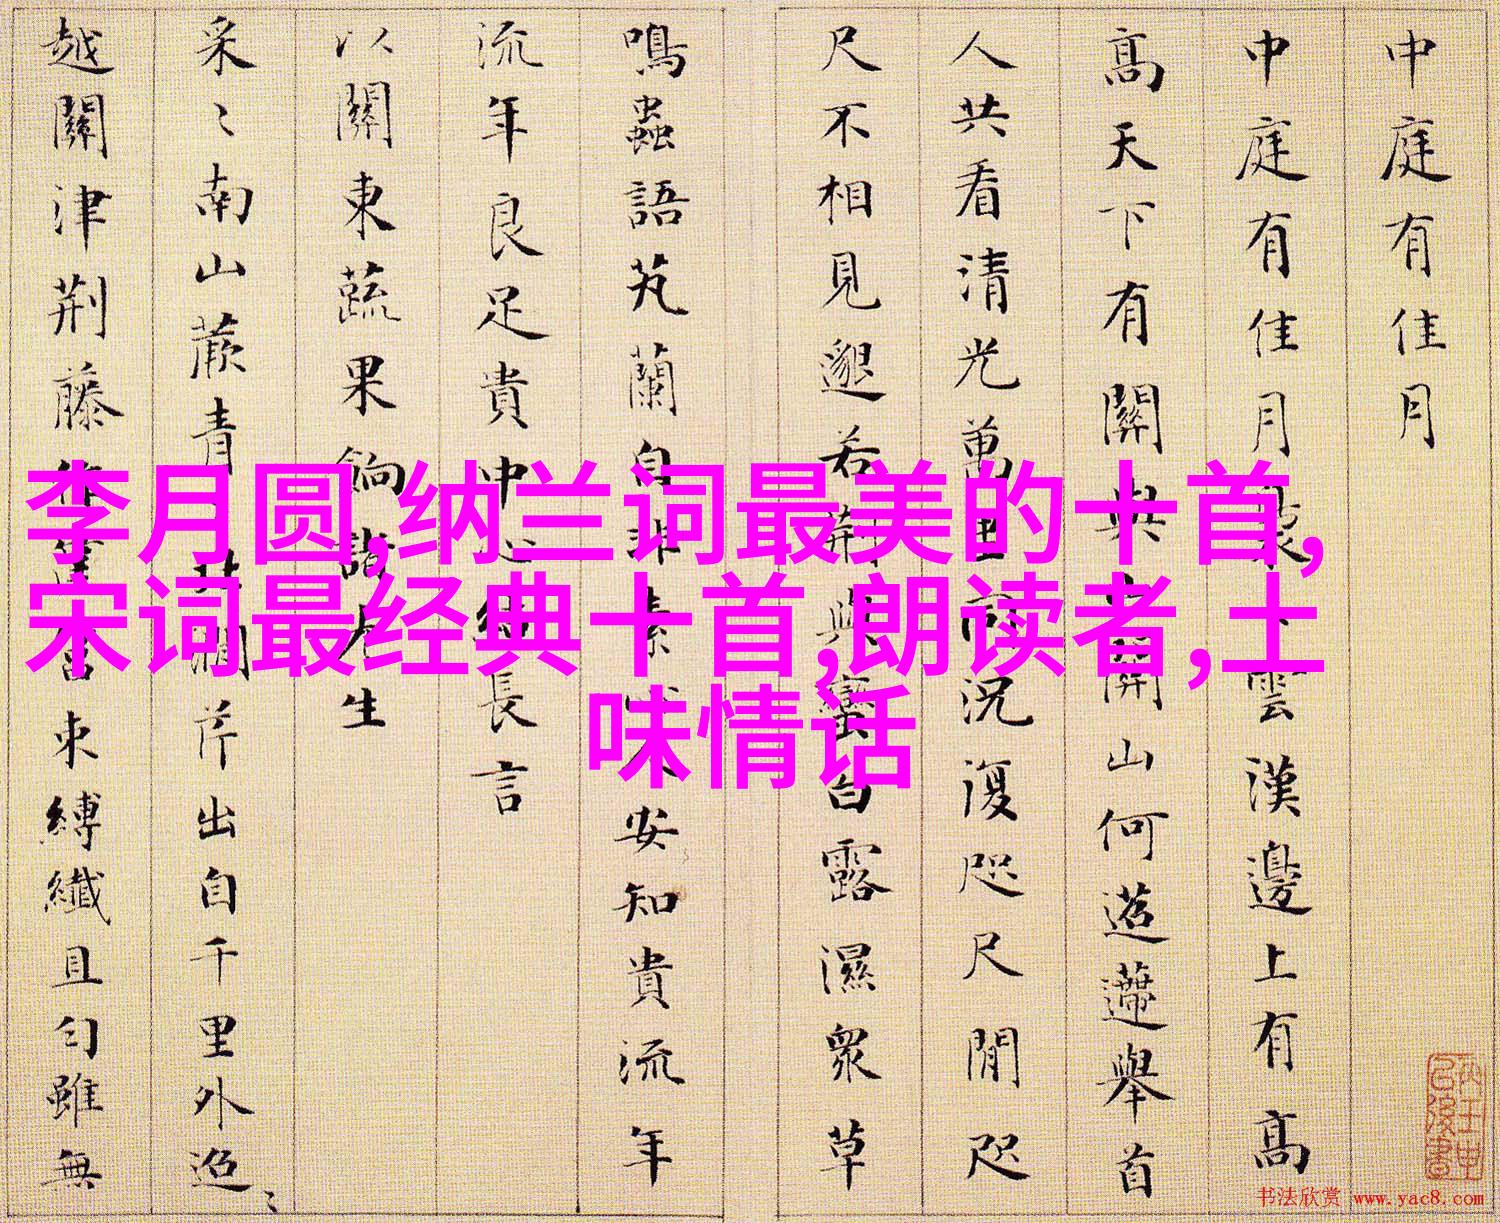 中庭有佳月
中庭有佳月
雲漢邊上有高
高天下有關與
開山何迢遰舉首
人共看清光萬里
況復咫尺間咫
尺不相見邈若荊
與蠻白露濕衆草
鳴蟲語芄蘭自非素
安知貴流年
流年良足貴中心
長言
以關東蔬果餉諸
生
采〻南山蕨青
澗芹出自千里外迢〻
越關津荆藤
束縛纖且勻雖無
李月圆,纳兰词最美的十首,
宋词最经典十首,朗读者,土
味情话
书法欣赏 www.yac8.com